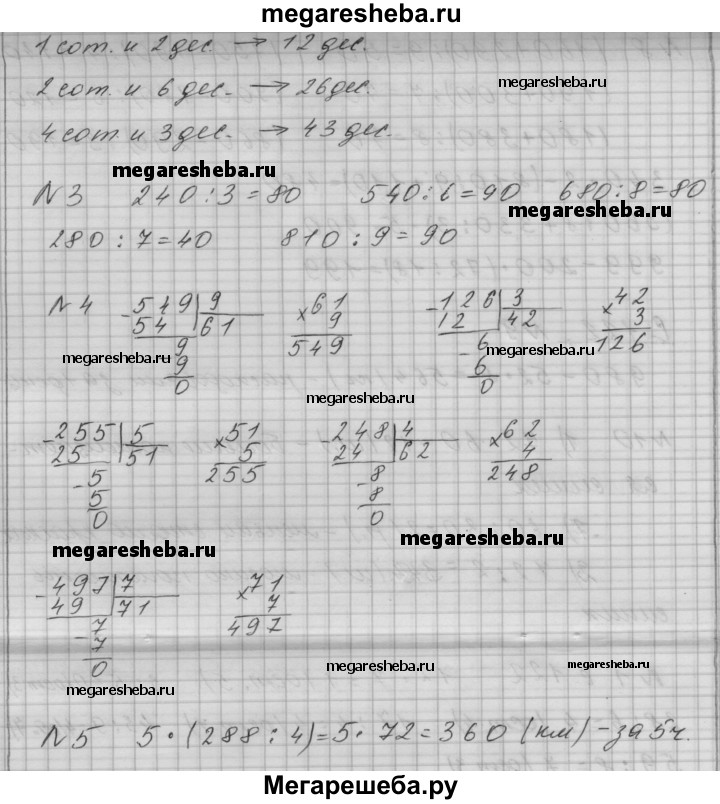 megaresheba.ru
1 сот. и 2 дес. → 12 дес.
2 сот. и 6 дес. → 26 дес.
megaresheba.ru
4 сот и 3 дес. → 43 дес.
megaresheba.ru
N 3 240 : 3 = 80 540 : 6 = 90 680 : 8 = 80
megaresheba.ru
280 : 7 = 40 810 : 9 = 90
N 4 - 549 | 9 × 61 - 126 | 3 × 42
54 | 61 9 12 | 42 3
9 549 - 6 126
megaresheba.ru megaresheba.ru
9 6
0 0
megaresheba.ru
- 255 | 5 × 51 - 248 | 4 × 62
25 | 51 5 24 | 62 4
- 5 255 - 8 248
5 8
0 0
megaresheba.ru megaresheba.ru
- 497 | 7 × 71
49 | 71 7
- 7 497
7
0
megaresheba.ru megaresheba.ru
megaresheba.ru
N 5 5 · (288 : 4) = 5 · 72 = 360 (км) - за 5 ч.
Мегарешеба.ру